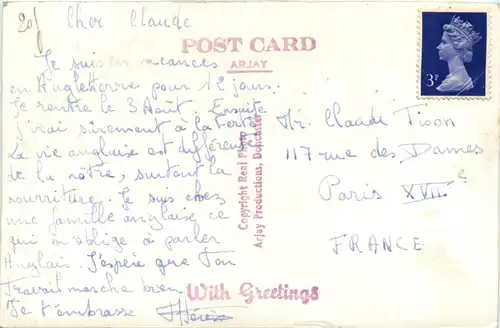 20f
Cher Claude
POST CARD
ARJAY
3P
Je suis en vacances
en Angleterre pour 12 jours.
Je rentre le 3 Août. Ensuite
j'irai sûrement à la Ferté.
La vie anglaise est différente
de la nôtre, surtout la
nourriture. Je suis chez
une famille anglaise ce
qui m'oblige à parler
Anglais. J'espère que Ton
Travail marche bien
Je t'embrasse
Copyright Real Photo
Arjay Productions, Doncaster
Mr. Claude
117 rue des Dames
Paris XVIIe
FRANCE
With Greetings